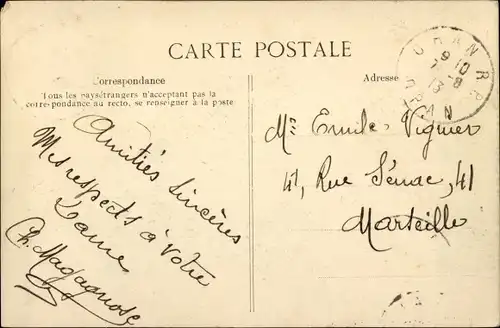 CARTE POSTALE
Correspondance
Tous les paysétrangers n'acceptant pas la
correspondance au recto, se renseigner à la poste
Adresse
ORAN R.P.
9 10
13-8
ORAN
Amitiés sincères
Mes respects à Votre
Dame
Ch. Magagnosc
Mr Emile Vignier
41, Rue Sénac, 41
Marseille